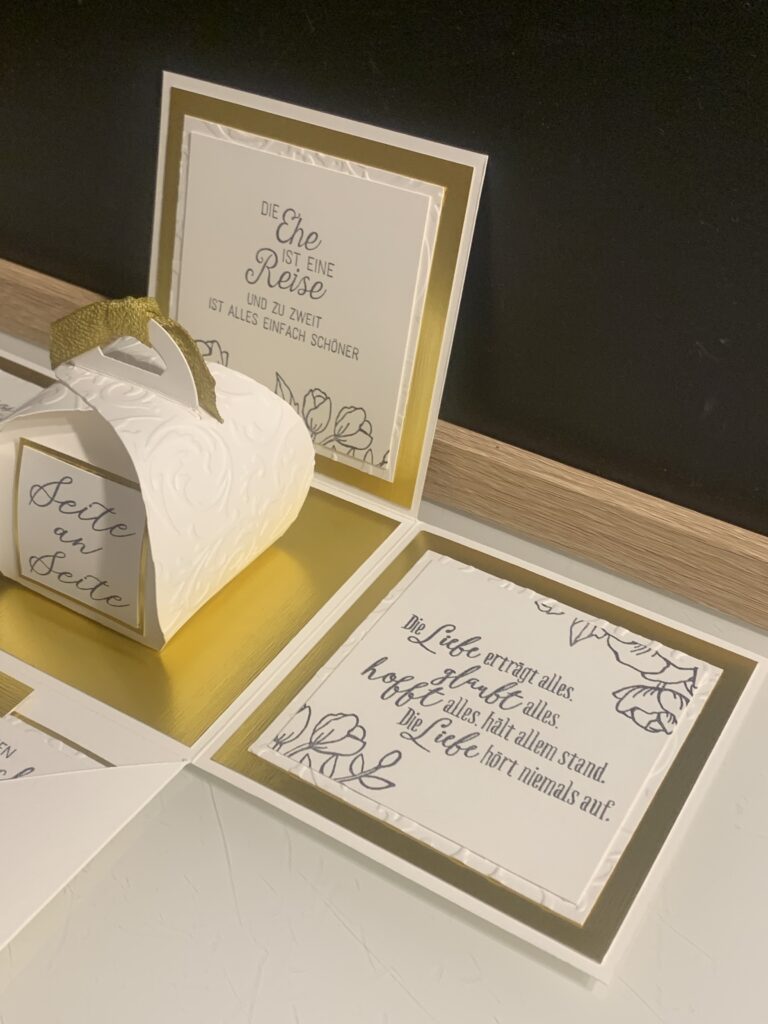 DIE Ehe
IST EINE
Reise
UND ZU ZWEIT
IST ALLES EINFACH SCHÖNER
Seite
an
Seite
Die Liebe erträgt alles.
glaubt alles.
hofft alles, hält allem stand.
Die Liebe hört niemals auf.